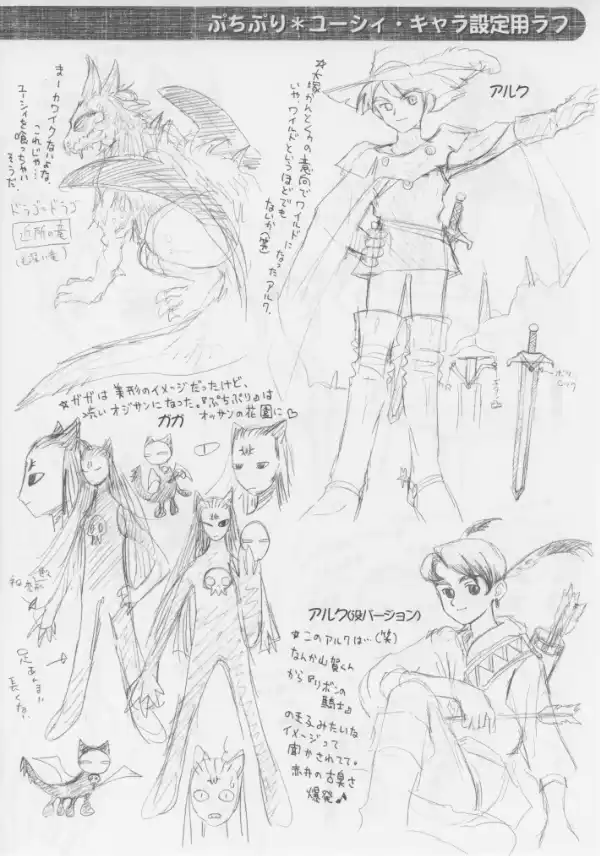 ぷちぷり＊ユーシィ・キャラ設定用ラフ
まーカワイクないよな、
これじゃ…
ユーシィを喰っちゃい
そうだ。
近所の竜
アルク
☆大塚かんとくの意向でワイルドになったアルク。
いやワイルドというほどでも
ないか(笑)
☆ガガは美形のイメージだったけど、
渋いオジサンになった。『ぷちぷり』は
オッサンの花園に♡
ガガ
アルク(没バージョン)
☆このアルクは…(笑)
なんか山賀くん
から『リボンの
騎士』
のまるみたいな
イメージって
聞かされてて。
赤井の古臭さ
爆発♪